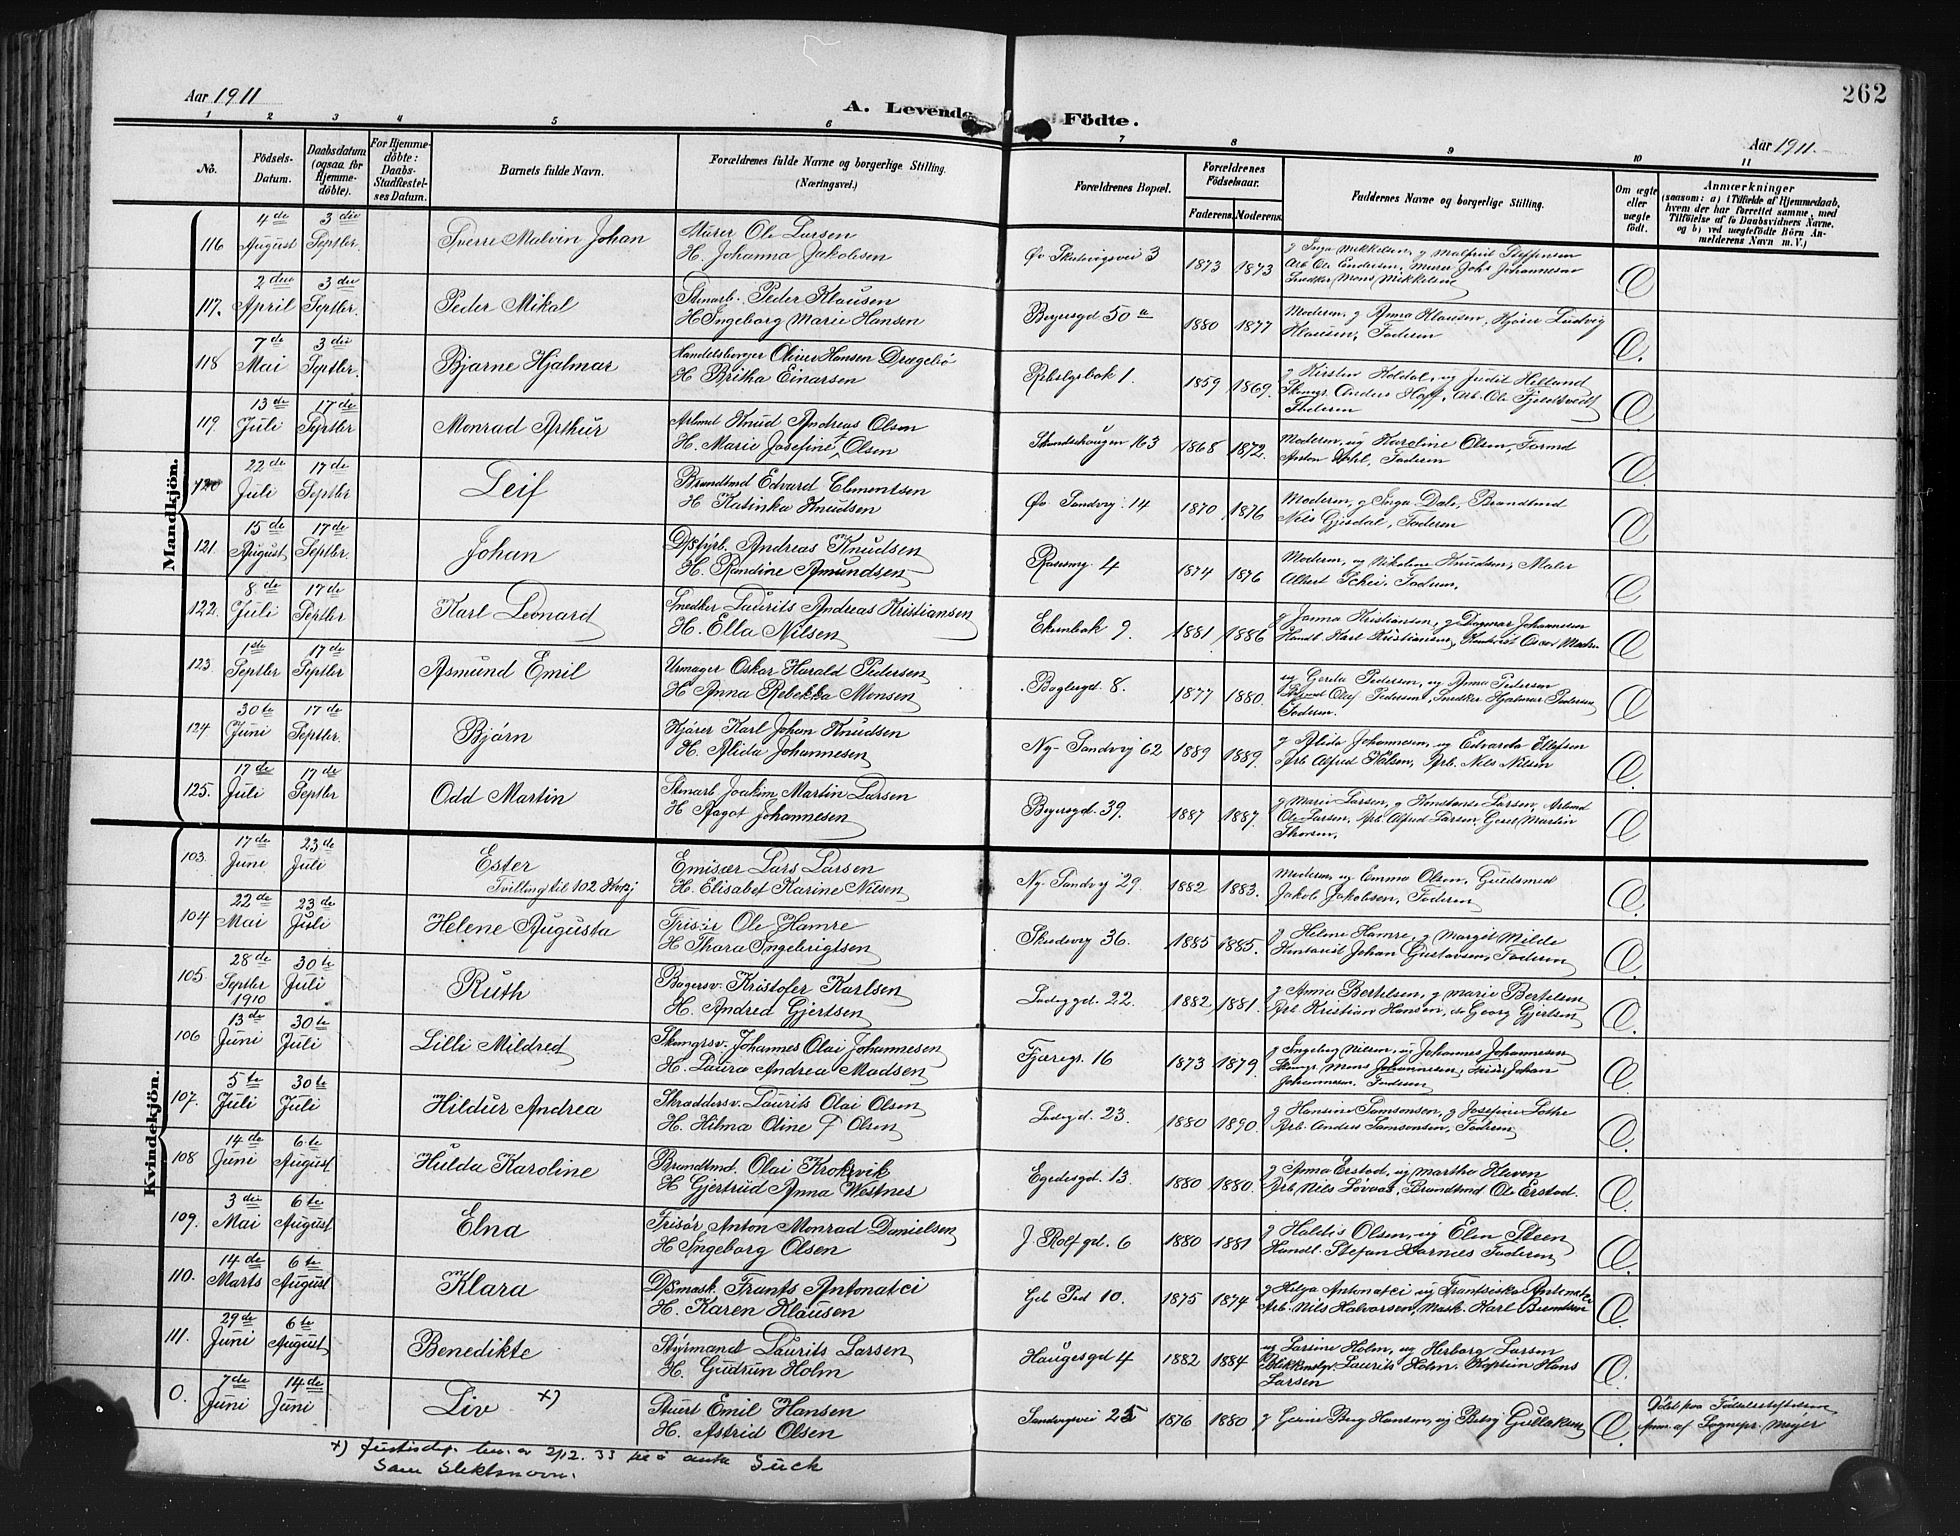 262
Aar 1911
A. Levende Födte.
Aar 1911.
1 2 3 4 5 6 7 8 9 10 11
No.
Födsels-Datum.
Daabsdatum (ogsaa for Hjemme-döbte).
For Hjemme-döbte: Daabs-Stadfæstel-ses Datum.
Barnets fulde Navn.
Forældrenes fulde Navne og borgerlige Stilling. (Næringsvei.)
Forældrenes Bopæl.
Forældrenes Födselsaar.
Faderens. Moderens.
Faddernes Navne og borgerlige Stilling.
Om ægte eller uægte født.
Anmærkninger
(saasom: a) i Tilfælde af Hjemmedaab, hvem der har forrettet samme, med Tilföielse af to Daabsvidners Navne, og b) ved uægtefødte Börn An-melderens Navn m. V.)
Mandkjön.
116 4de August 3die Septbr. Sverre Malvin Johan Murer Ole Larsen
H. Johanna Jakobsen Øv. Skudevigsvei 3 1873 1873
Snedker Mons Mikkelsen
117. 2den April 3die Septbr. Peder Mikal Stenarb. Peder Klausen
H Ingeborg Marie Hansen Beyersgd 50 a 1880 1877 Moderen, g Anna Klausen, Kjører Ludvig
Klausen, Faderen
118 7de Mai 3die Septbr. Bjarne Hjalmar Oliver Hansen Drægebø
H Britha Einarsen 1. 1859 1869.
Faderen
119. 13de Juli 17de Septbr Monrad Arthur Knud Andreas Olsen
H. Marie Josefine Olsen 163 1868 1872. Moderen, ug Karoline Olsen, Formd
Anton Dahl, Faderen
120 22de Juli 17de Septbr Leif Brandtmd Edvard Clementsen
H. Katinka Knudsen Øv Sandvig. 14 1870 1876 Moderen, g Inga Dale, Brandtmd
Nils Gjesdal, Faderen
121. 15de August 17de Septbr. Johan D/Styrb. Andreas Knudsen
H. Randine Amundsen 4 1874 1876 Moderen, ug Nikoline Knudsen, Maler
Albert Schei, Faderen.
122. 8de Juli 17de Septbr Karl Leonard Snedker Laurits Andreas Kristiansen
H. Ella Nilsen 9. 1881 1886 g Janna Kristiansen, g Dagmar Johannesen
Handt. Karl Kristiansen,
123 1ste Septbr 17de Septbr Asmund Emil Urmager Oskar Harald Pedersen
H Anna Rebekka Monsen Baglergd 8. 1877 1880. ug Gerda Pedersen, ug Anna Pedersen
Olaf Pedersen, Snedker Hjalmar Pedersen,
Faderen.
124 30te Juni 17de Septbr. Bjørn Kjører Karl Johan Knudsen
H. Alida Johannesen Ny-Sandvig 62 1889 1889. g Alida Johannesen, ug Edvarda Ellefsen
Arb. Alfred Nilsen, Arb. Nils Nilsen
125. 17de Juli 17de Septbr Odd Martin Stenarb Joakim Martin Larsen
H Aagot Johannesen Beyersgd. 39. 1887 1887. g Marie Larsen, g Konstanse Larsen, Arbmd
Ole Larsen, Arb. Alfred Larsen, Martin
Thorsen.
Kvindekjön.
103. 17de Juni 23de Juli Ester
Tvilling til 102 Kvkj Emisær Lars Larsen
H. Elisabet Karine Nilsen Ny-Sandvig 29. 1882 1883. Moderen, ug Emma Olsen, Guldsmed
Jakob Jakobsen, Faderen
104 22de Mai 23de Juli Helene Augusta Frisør Ole Hamre
H Thora Ingebrigtsen Skudevig 36. 1885 1885. g Helene Hamre, g Margit Milde
Kontorist Johan Gustavsen, Faderen
105. 28de Septbr 1910 30te Juli Ruth Bagersv. Kristofer Karlsen
H. Andrea Gjertsen Ladeggd. 22. 1882 1881. g Anna Bertelsen, g Marie Bertelsen
Arb. Kristian Hansen, do Georg Gjertsen
106 13de Juni 30te Juli Lilli Mildred Skomgrsv. Johannes Olai Johannesen
H. Laura Andrea Madsen Fjæregr. 16 1873 1879. g Ingeborg Nilsen, ug Johannes Johannesen
Skomgr. Mons Johannesen, Johan
Johannesen. Faderen
107. 5te Juli 30te Juli Hildur Andrea Skraddersv. Laurits Olai Olsen
H. Hilma Oline Olsen Ladegd. 23. 1880 1890. g Hansine Samsonsen, g Josefine Lothe
Arb. Anders Samsonsen, Faderen
108 14de Juni 6te August Hulda Karoline Brandtmd. Olai Krokvik
H Gjertrud Anna Westnes Egedesgd. 13. 1880 1880. g Anna Erstad, ug Martha Kleven
Arb. Nils Løvaas, Brandtmd Ole Erstad.
109. 3die Mai 6te August Elna Frisør Anton Monrad Danielsen
H Ingeborg Olsen J. Rolf gd. 6 1880 1881 g Haldis Olsen, ug Elen Steen
Handt. Stefan Aarnes Faderen
110. 14de Marts 6te August Klara D/smask. Frants Antonatci
H. Karen Klausen 10. 1875 1874 g Helga Antonatci ug Frantsiska Antonatci
Arb. Nils Halvorsen, Mask. Karl Berntsen
111. 29de Juni 6te August Benedikte Styrmand Laurits Larsen
H. Gudrun Holm Haugesgd 4 1882 1884 ug Larsine Holm, ug Herborg Larsen
Laurits Holm. Kaptein Hans
Larsen
0. 7de Juni 14de Juni Liv x) Stuert Emil Hansen
H. Astrid Olsen Sandvigsvei 25 1876 1880 g Berg Hansen, ug
Døbt paa Fødselsstiftelsen
Anm. af Sognepr. Meyer
x) Justisdep. 2/12. 33
Such
Som Slektsnavn.